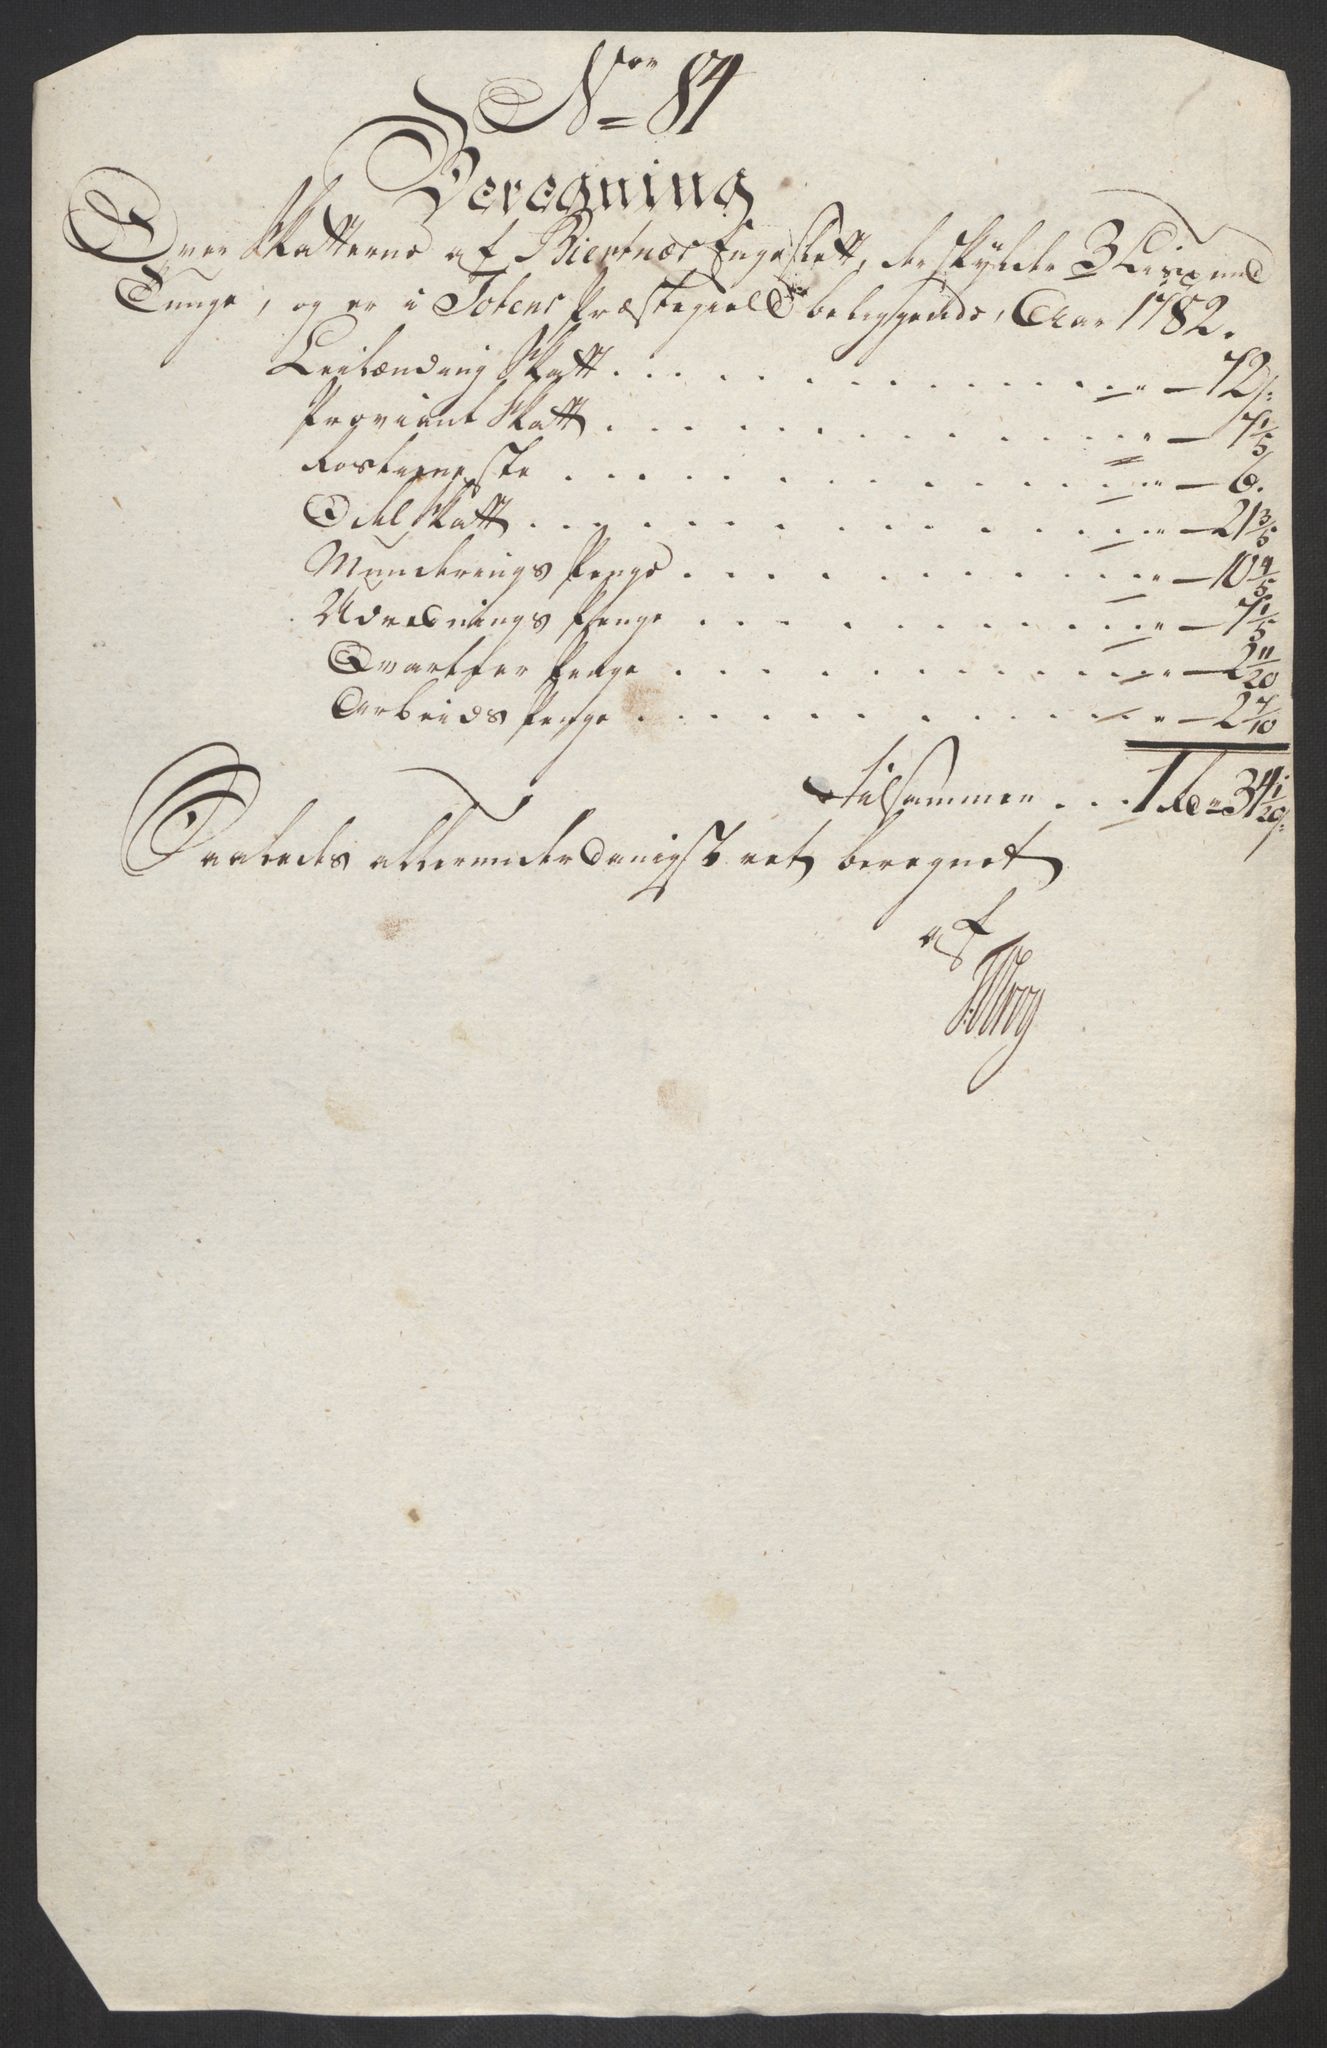 No 84
Beregning
Over Skatterne af Biertnæs Engeslett, der skylder 3 Lispund
Tunge, og er i Totens Præstegield beliggende, Aar 1782.
Leilænding Skatt . . . . . . . . . . . " — 72 s:
Proviant Skatt . . . . . . . . . . . " — 7 1/5
Rostieneste . . . . . . . . . . . " — 6.
Odel Skatt . . . . . . . . . . . " — 21 3/5
Munderings Penge . . . . . . . . . . " — 10 4/5
Udrednings Penge . . . . . . . . . . " — 7 1/5
Qvarteer Penge . . . . . . . . . . " — 2 11/20
Arbeids Penge . . . . . . . . . . " — 2 7/10
Tilsammen . . . 1 Rdr 34 1/20 s:
Saaledes allerunderdanigst ret beregnet
af